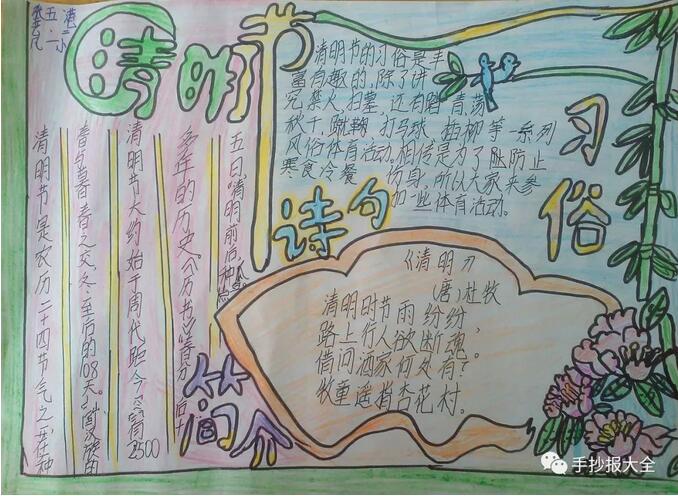 港二小
五.一
清明节
清明节的习俗是丰
富有趣的,除了讲
究禁火、扫墓,还有踏青、荡
秋千、蹴鞠、打马球、插柳等一系列
风俗体育活动。相传是为了防止
寒食冷餐伤身,所以大家来参
加一些体育活动。
习俗
诗句
《清明》
(唐)杜牧
清明时节雨纷纷,
路上行人欲断魂。
借问酒家何处有?
牧童遥指杏花村。
简介
清明节是农历二十四节气之一,在仲
春与暮春之交,冬至后的108天。
清明节大约始于周代,距今已有2500
多年的历史。《历书》:“春分后十
五日
清明前后,种
手抄报大全